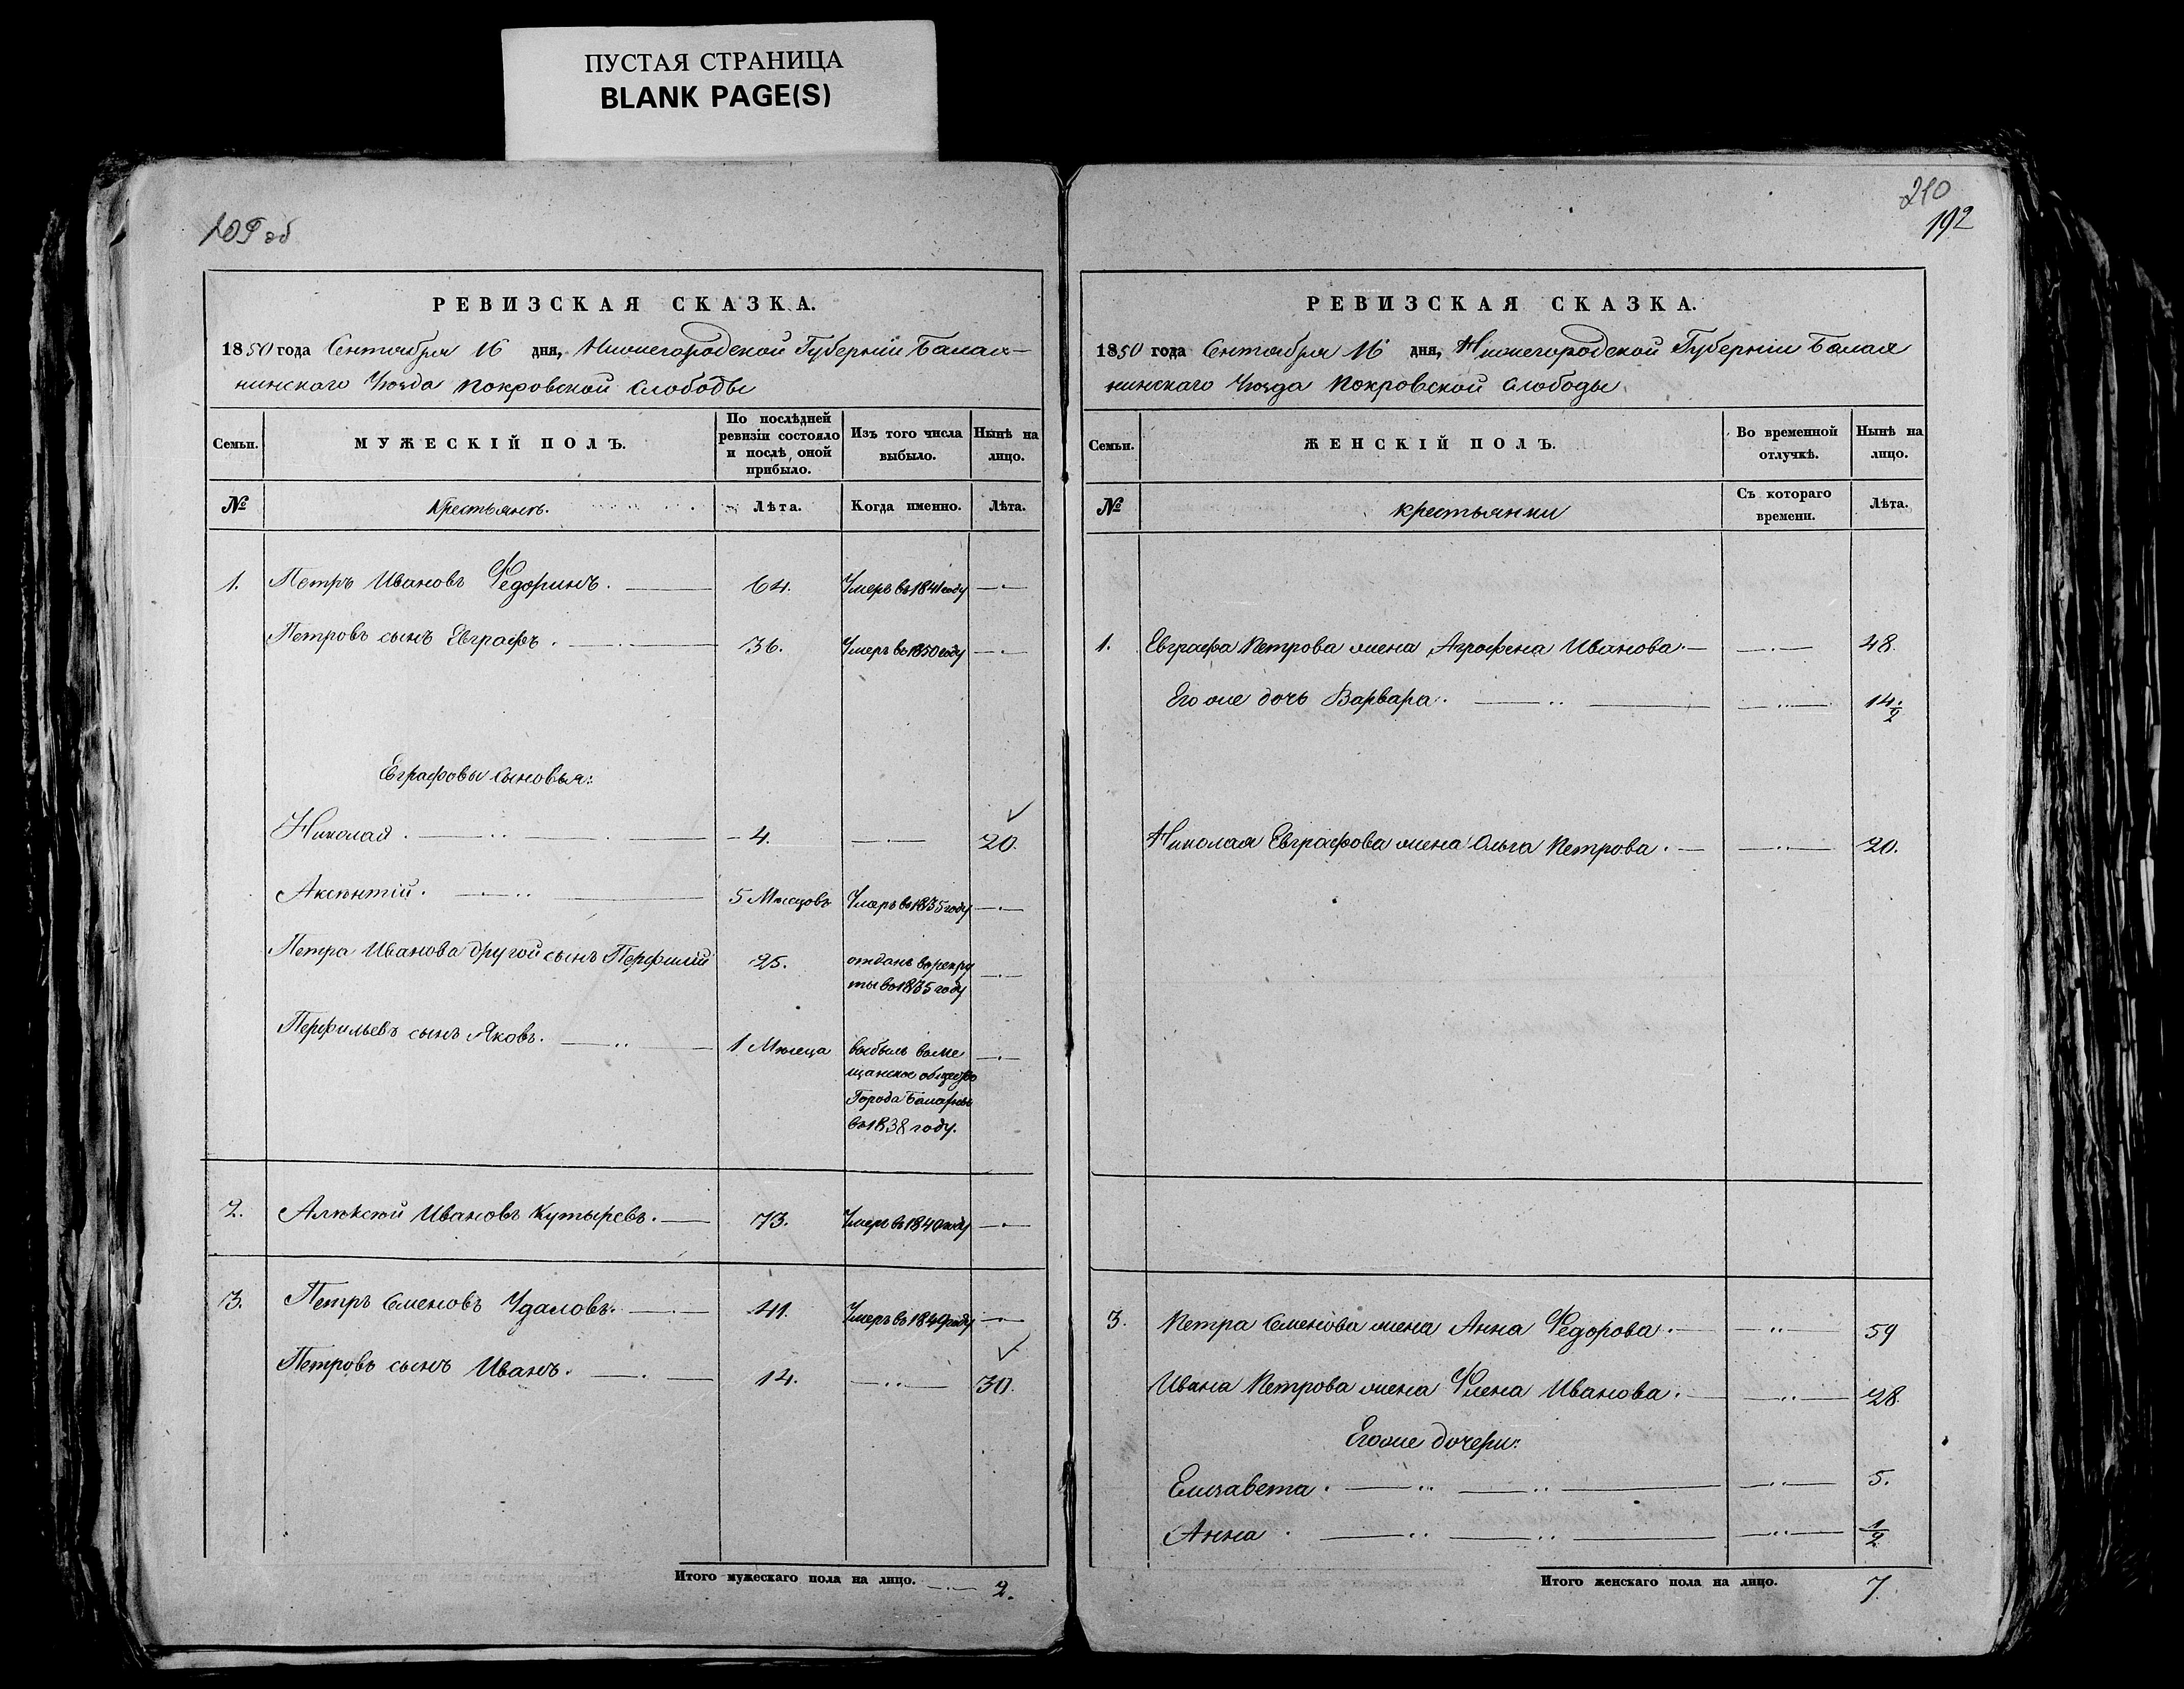 ПУСТАЯ СТРАНИЦА
BLANK PAGE(S)
109 об
РЕВИЗСКАЯ СКАЗКА.
1850 года Сентября 16 дня, Нижегородской Губерніи Балах-
нинскаго Уѣзда Покровской Слободы
Семьи. МУЖЕСКІЙ ПОЛЪ. По послѣдней ревизіи состояло и послѣ оной прибыло. Изъ того числа выбыло. Нынѣ на лицо.
№ Крестьянъ. Лѣта. Когда именно. Лѣта.
1. Петръ Ивановъ Ѳедоринъ. 64. Умеръ въ 1841 году
Петровъ сынъ Евграфъ. 36. Умеръ въ 1850 году
Евграфовы сыновья:
Николай. 4. 20.
Аксентій. 5 Мѣсяцовъ Умеръ въ 1835 году
Петра Иванова другой сынъ Перфилій 25. отданъ въ рекру
ты въ 1835 году
Перфильевъ сынъ Яковъ. 1 Мѣсяца выбылъ въ Ме
щанское общество
Города Балахны
въ 1838 году.
2. Алѣксѣй Ивановъ Кутыревъ. 73. Умеръ въ 1840 году
3. Петръ Сменовъ Удаловъ. 41. Умеръ въ 1849 году
Петровъ сынъ Иванъ. 14. 30.
Итого мужескаго пола на лицо. 2.
210
192
РЕВИЗСКАЯ СКАЗКА.
1850 года Сентября 16 дня, Нижегородской Губерніи Балах
нинскаго Уѣзда Покровской Слободы
Семьи. ЖЕНСКІЙ ПОЛЪ. Во временной отлучкѣ. Нынѣ на лицо.
№ крестьянки Съ котораго времени. Лѣта.
1. Евграфа Петрова жена Аграфена Иванова. 48.
Его же дочь Варвара. 14 1/2
Николая Евграфова жена Ольга Петрова. 20.
3. Петра Сменова жена Анна Ѳедорова. 59
Ивана Петрова жена Ѳлена Иванова. 28.
Его же дочери:
Елизавета. 5.
Анна. 1/2
Итого женскаго пола на лицо. 7.